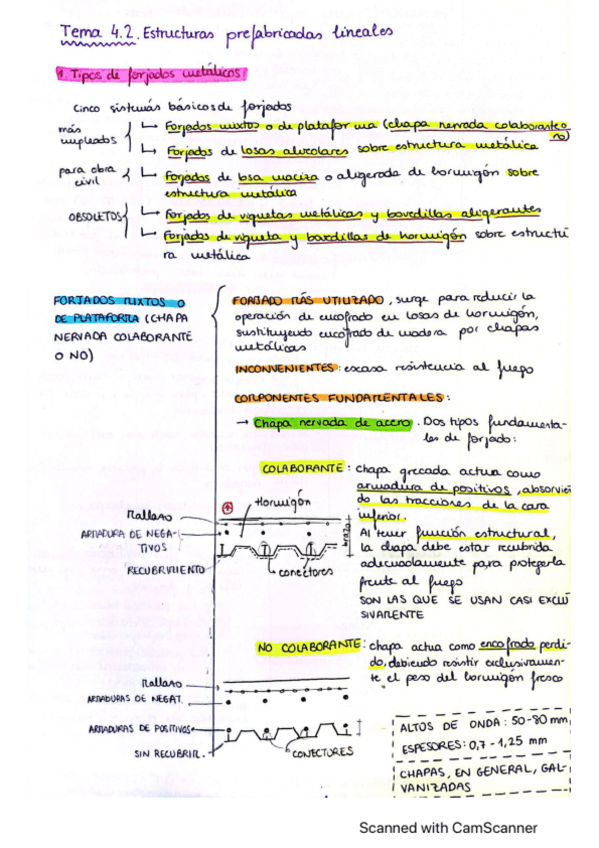 Tema 4.2. Estructuras prefabricadas lineales
1. Tipos de forjados metálicos
Cinco sistemas básicos de forjados
más empleados
Forjados mixtos o de plataforma (chapa nervada colaborante o no)
Forjados de losas alveolares sobre estructura metálica
para obra civil
Forjados de losa maciza o aligerada de hormigón sobre
estructura metálica
OBSOLETOS
Forjados de viguetas metálicas y bovedillas aligerantes
Forjados de vigueta y bovedillas de hormigón sobre estructu
ra metálica
FORJADOS MIXTOS O
DE PLATAFORMA (CHAPA
NERVADA COLABORANTE
O NO)
FORJADO MÁS UTILIZADO, surge para reducir la
operación de encofrado en losas de hormigón,
sustituyendo encofrado de madera por chapas
metálicas
INCONVENIENTES: escasa resistencia al fuego
COMPONENTES FUNDAMENTALES:
→ Chapa nervada de acero. Dos tipos fundamenta-
les de forjado:
COLABORANTE: chapa grecada actua como
armadura de positivos, absorvien
do las tracciones de la cara
inferior.
Al tener función estructural,
la chapa debe estar recubrida
adecuadamente para protegerla
frente al fuego
SON LAS QUE SE USAN CASI EXCLU
SIVAMENTE
Hormigón
Mallazo
ARMADURA DE NEGA-
TIVOS
RECUBRIMIENTO
conectores
brazo
NO COLABORANTE: chapa actua como encofrado perdi-
do, debiendo resistir exclusivamen-
te el peso del hormigón fresco
Mallazo
ARMADURAS DE NEGAT.
ARMADURAS DE POSITIVOS
SIN RECUBRIM.
CONECTORES
ALTOS DE ONDA: 50-80 mm
ESPESORES: 0,7 - 1,25 mm
CHAPAS, EN GENERAL, GAL-
VANIZADAS
Scanned with CamScanner